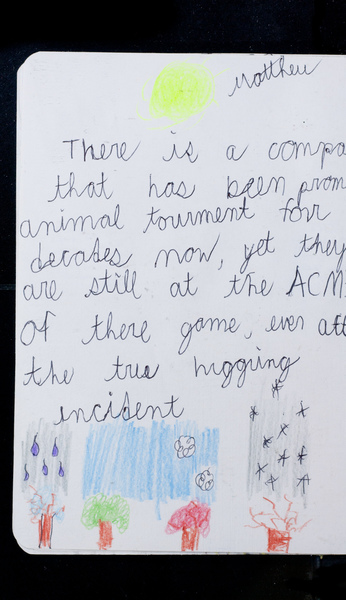 Matthew
There is a compa
that has been prom
animal tourment for
decates now, yet they
are still at the ACM
of there game, even aft
the tree higging
incident